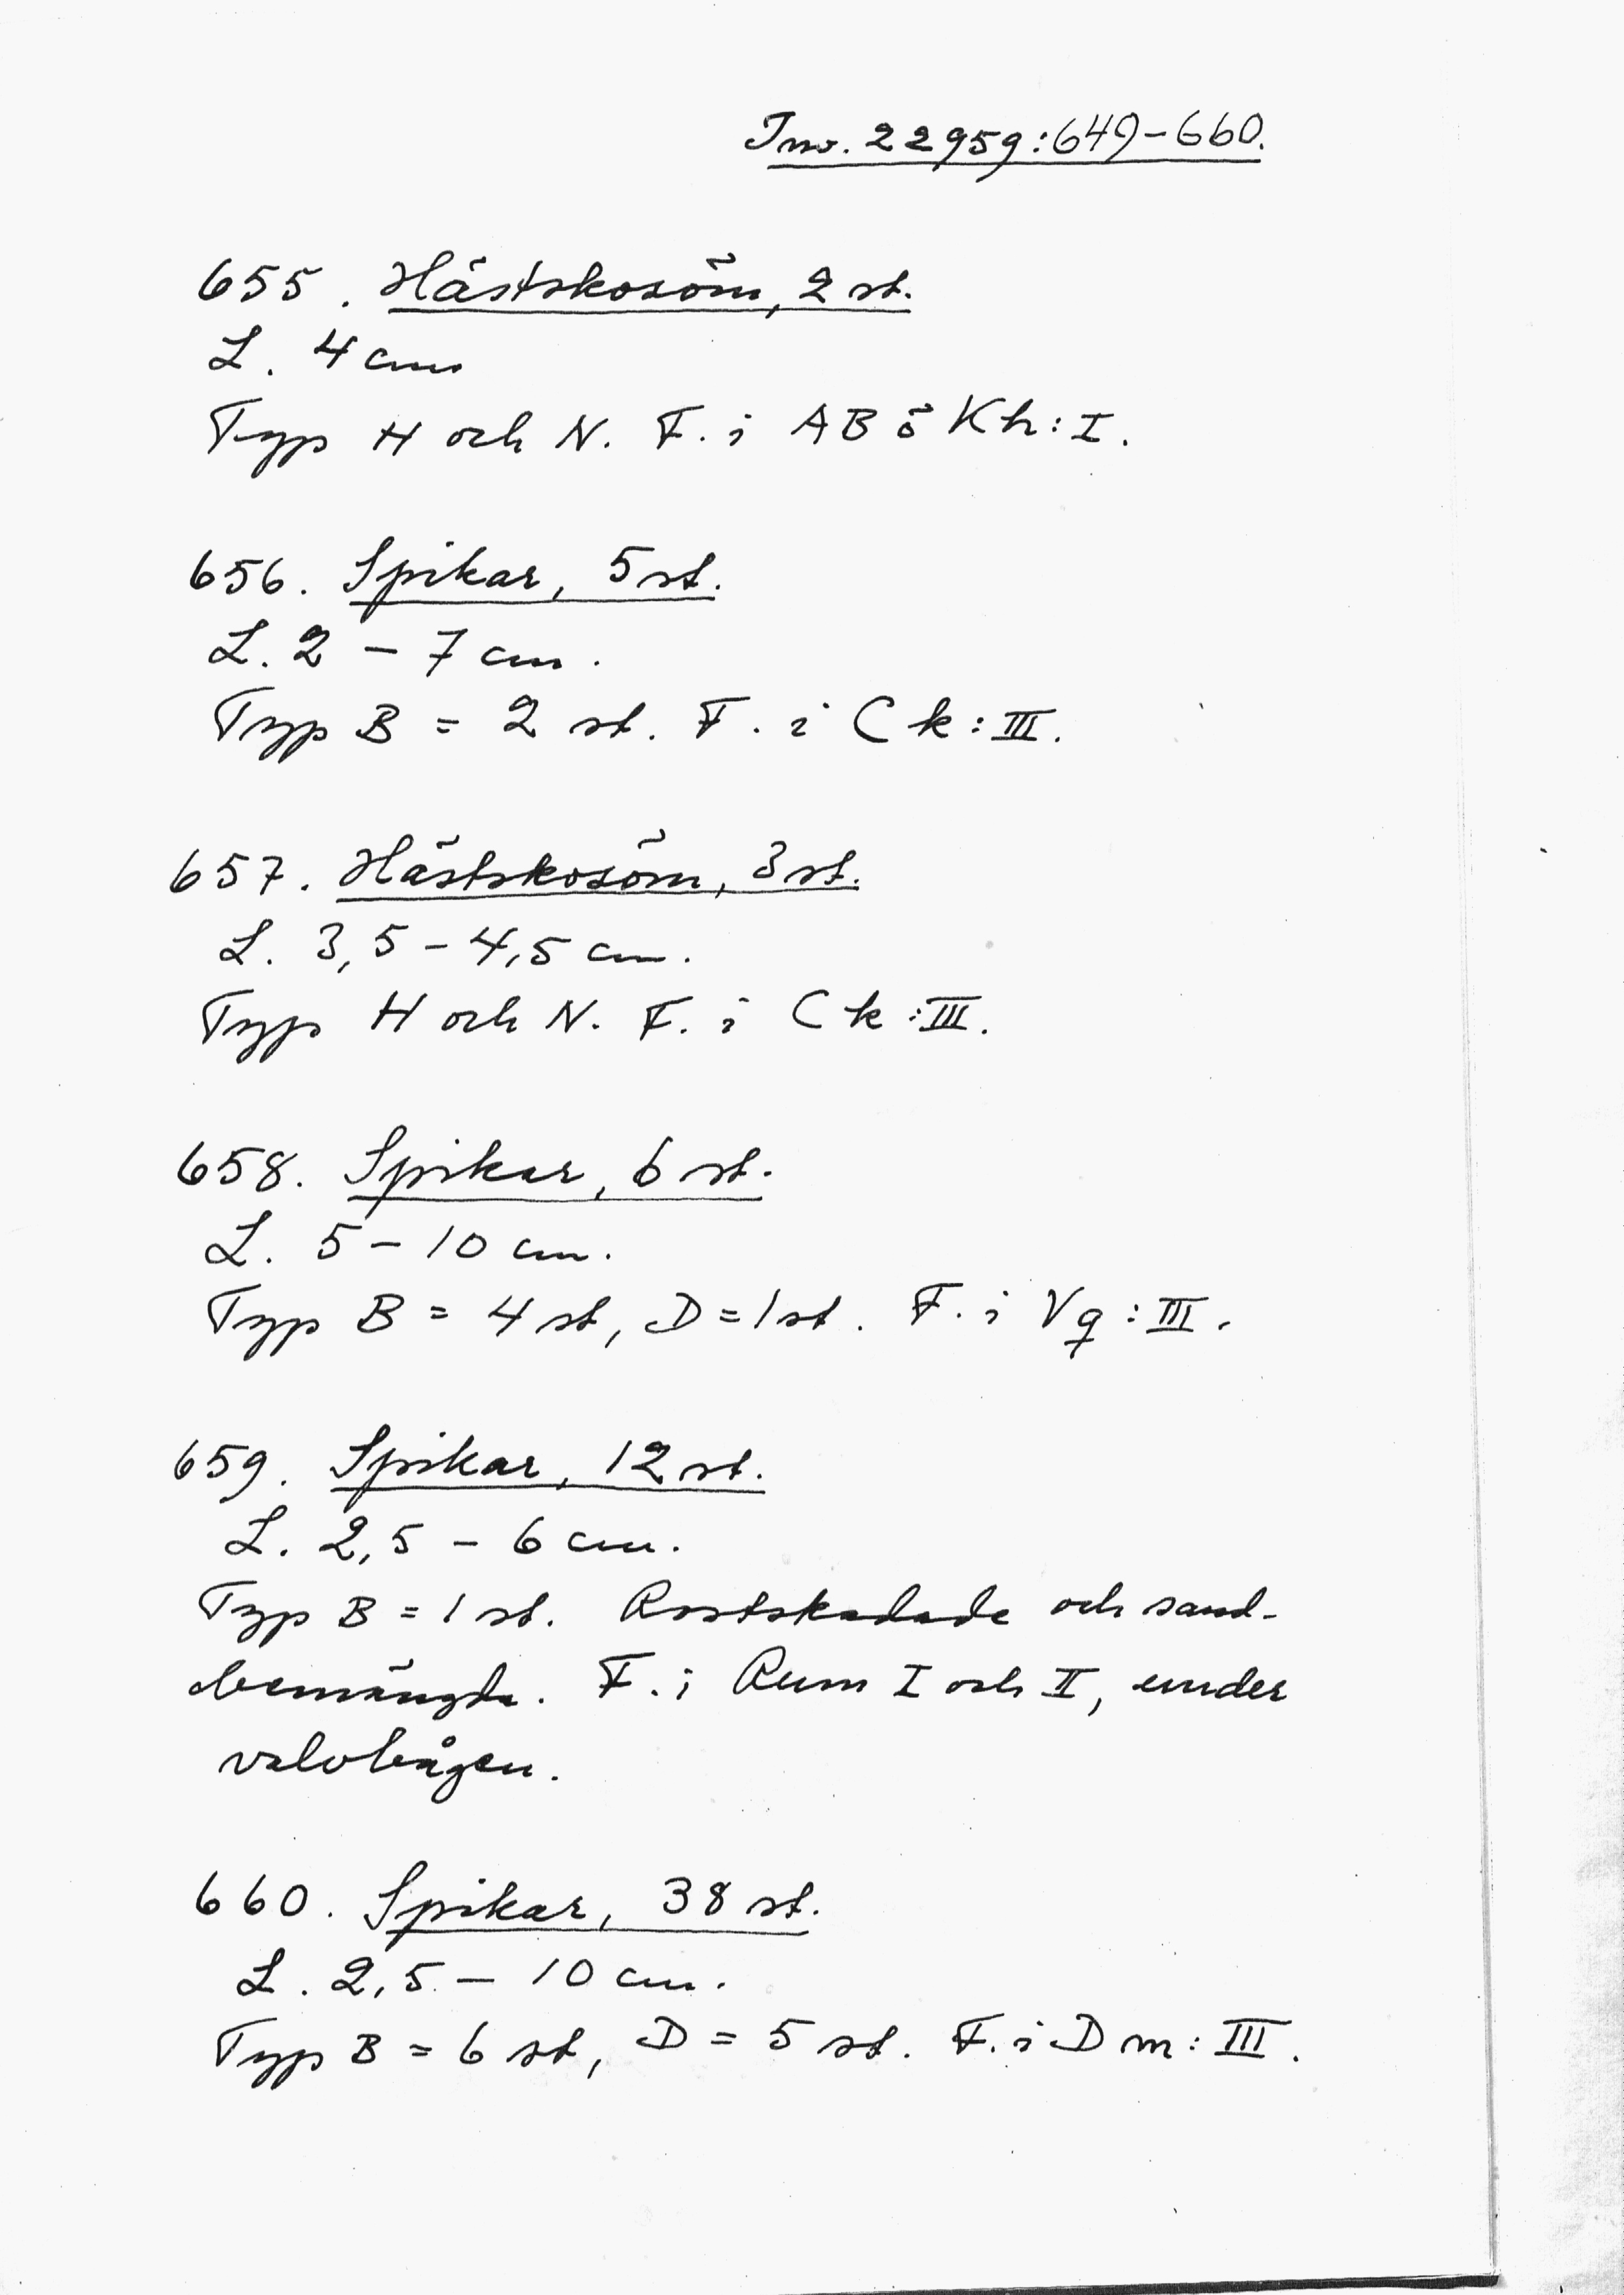 Inv. 22959:649-660.
655. Hästskosöm, 2 st.
L. 4 cm
Typ H och N. F. i AB ö Kh:I.
656. Spikar, 5 st.
L. 2 - 7 cm.
Typ B = 2 st. F. i Ck:III.
657. Hästskosöm, 3 st.
L. 3,5 - 4,5 cm.
Typ H och N. F. i Ck:III.
658. Spikar, 6 st.
L. 5 - 10 cm.
Typ B = 4 st, D = 1 st. F. i Vq:III.
659. Spikar, 12 st.
L. 2,5 - 6 cm.
Typ B = 1 st. Rostskadade och sand-
bemängda. F. i Rum I och II, under
valvbågen.
660. Spikar, 38 st.
L. 2,5 - 10 cm.
Typ B = 6 st, D = 5 st. F. i Dm:III.